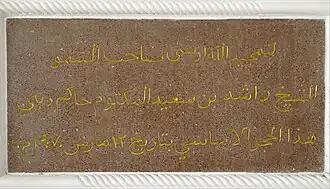 صاحب السمو
الشيخ راشد بن سعيد المكتوم حاكم دبي
هذا الحجر الاساسي بتاريخ ١٢ مارس ١٩٧٠م.